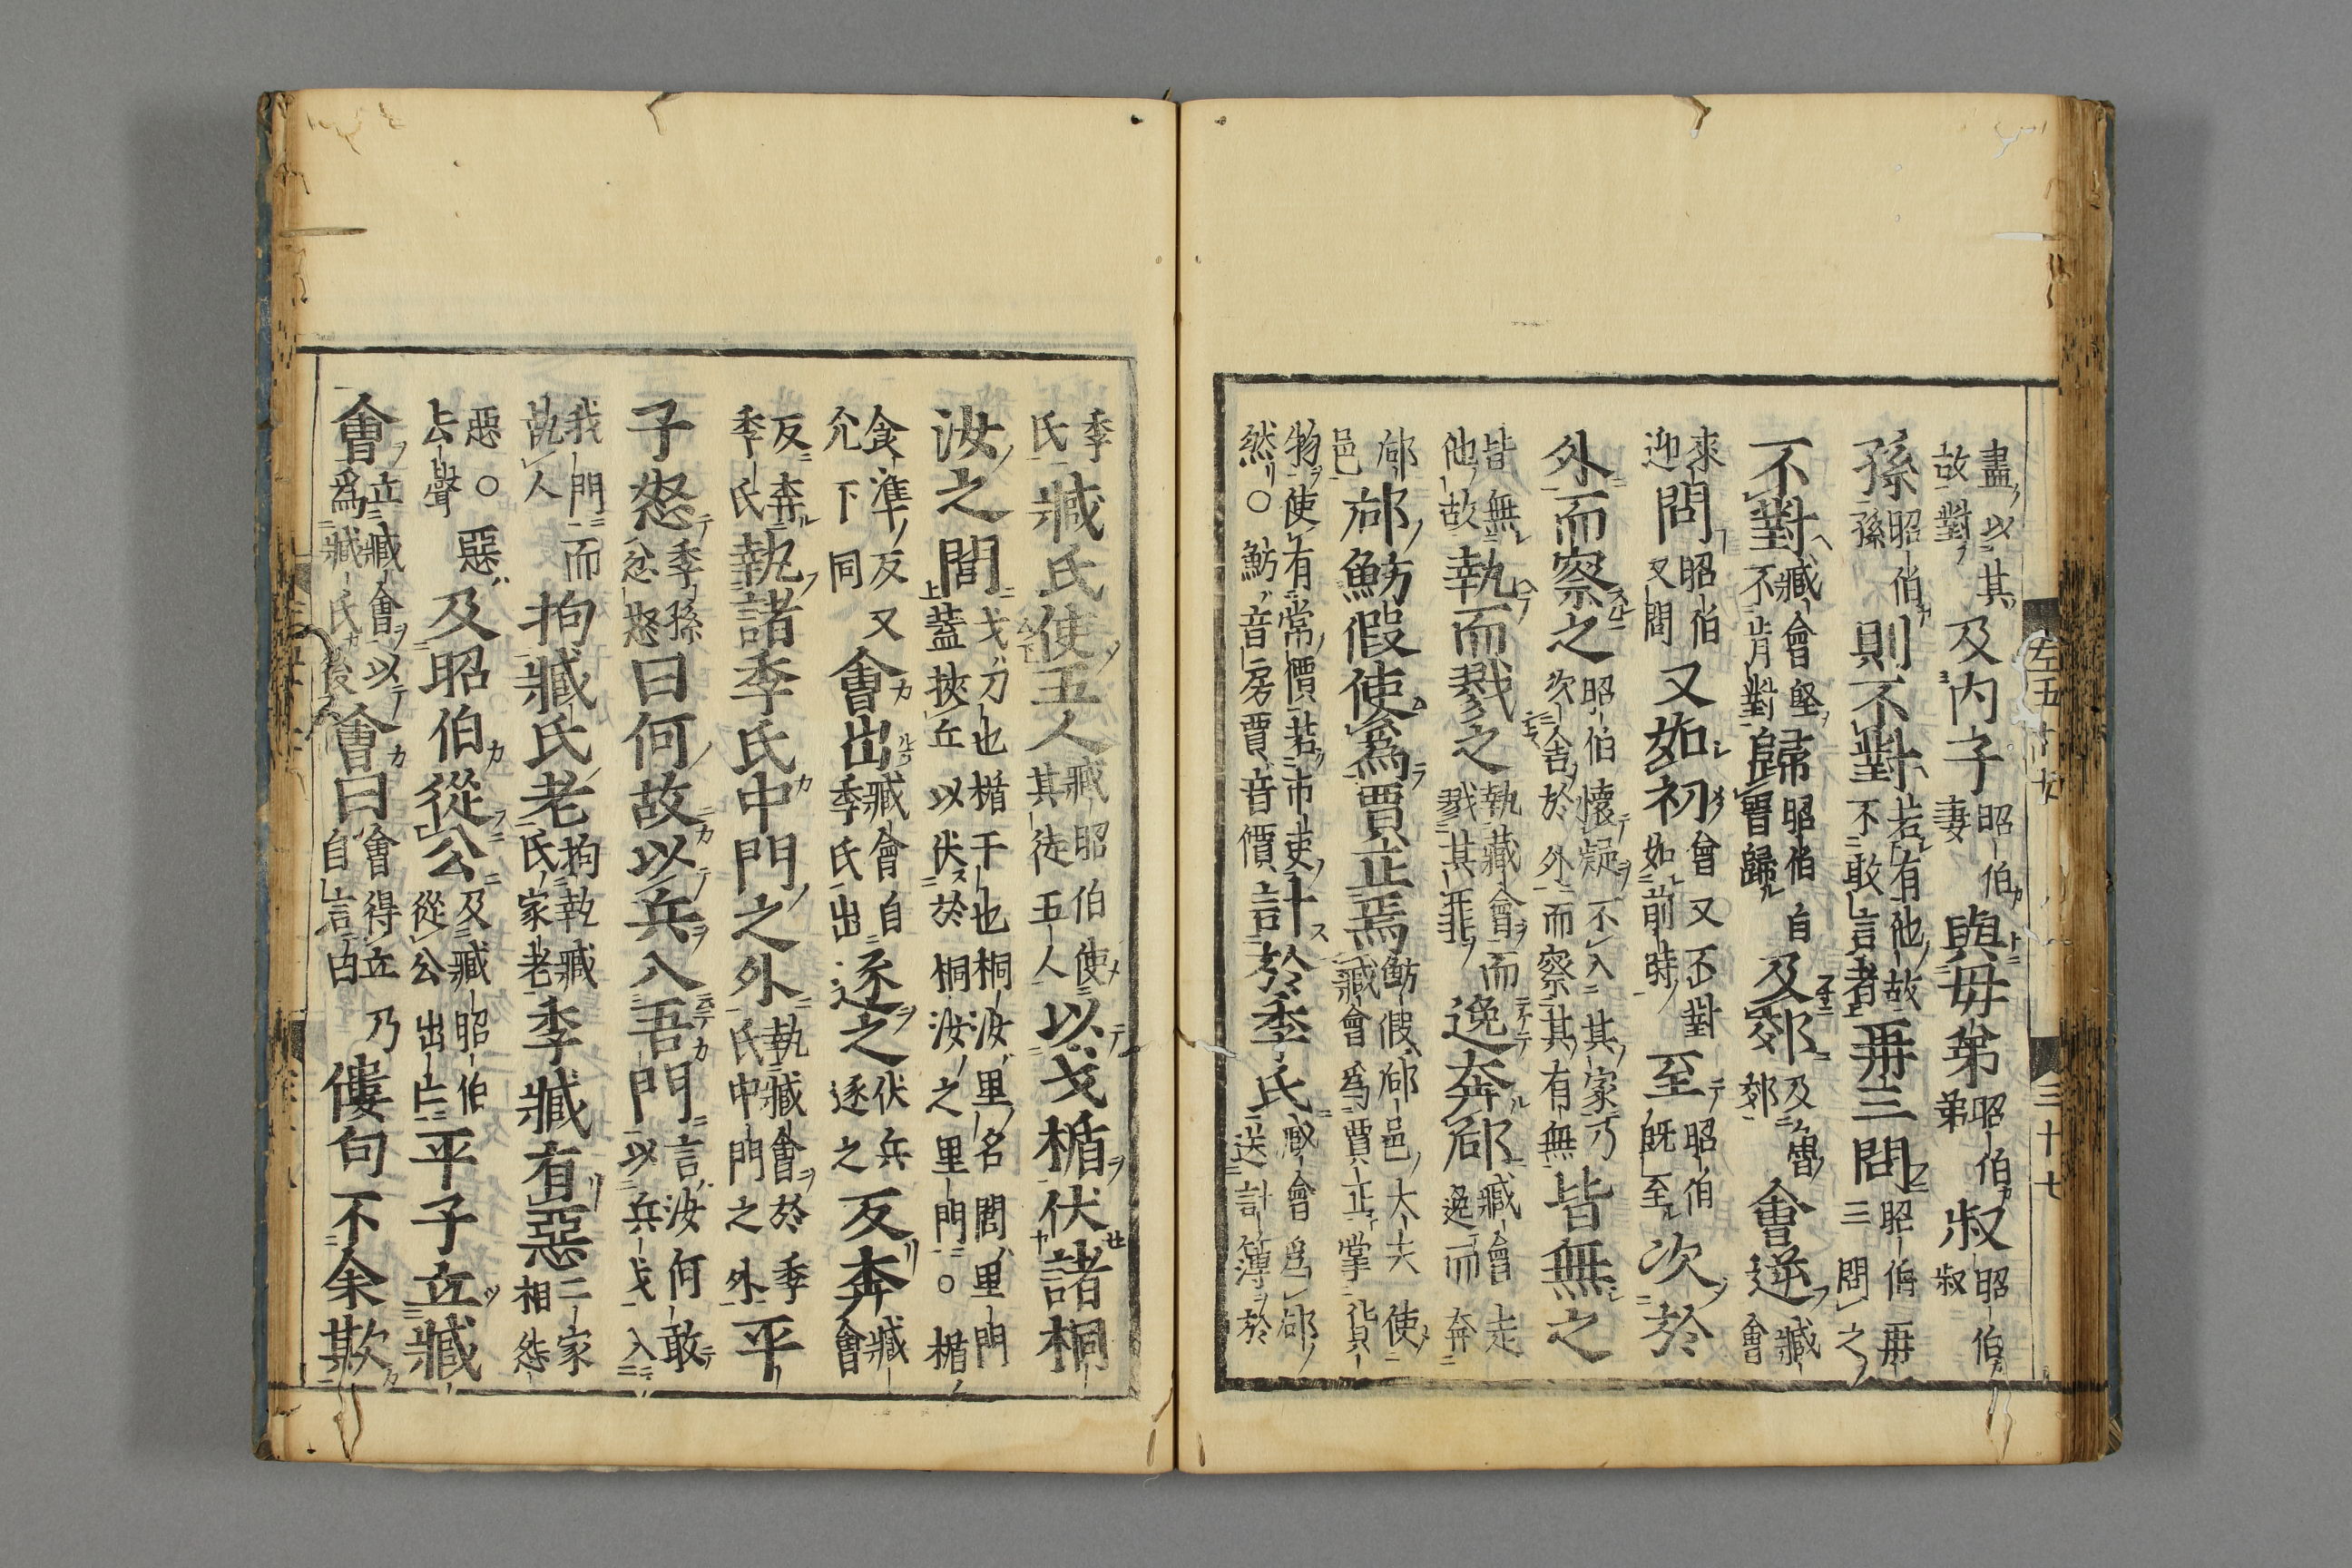 盡以其故對及内子昭伯妻與毋弟昭伯弟叔昭伯叔
孫昭伯孫則不對若有他故不敢言者再三問昭伯再三問之
不對臧會堅不肯對歸昭伯自晉歸及郊及魯郊會逆臧會
來迎問昭伯又問又如初會又不對如前時至昭伯既至次於
外而察之昭伯懷疑不入其家乃次舎於外而察其有無皆無之
皆無他故執而戮之執臧會而戮其罪逸奔郈臧會走逸而奔
郈邑郈魴假使爲賈正焉魴假郈邑大夫使臧會爲賈正掌貨
物使有常價若市吏然○魴音房賈音價計於季氏臧會爲郈送計簿於
左五十
三十七
季氏臧氏使五人臧昭伯使其徒五人以戈楯伏諸桐
汝之閭戈刀也楯干也桐汝里名閭里門上蓋挾丘以伏於桐汝之里門○楯
食準反又允下同會出臧會自季氏出逐之伏兵逐之反奔臧會
反奔季氏執諸季氏中門之外執臧會於季氏中門之外平
子怒季孫忿怒曰何故以兵入吾門言汝何敢以兵戈入
我門而執人拘臧氏老拘執臧氏家老季臧有惡二家相怨
惡○惡去聲及昭伯從公及臧昭伯從公出亡平子立臧
會立臧會以爲臧氏後會曰會得立乃自言曰僂句不余欺